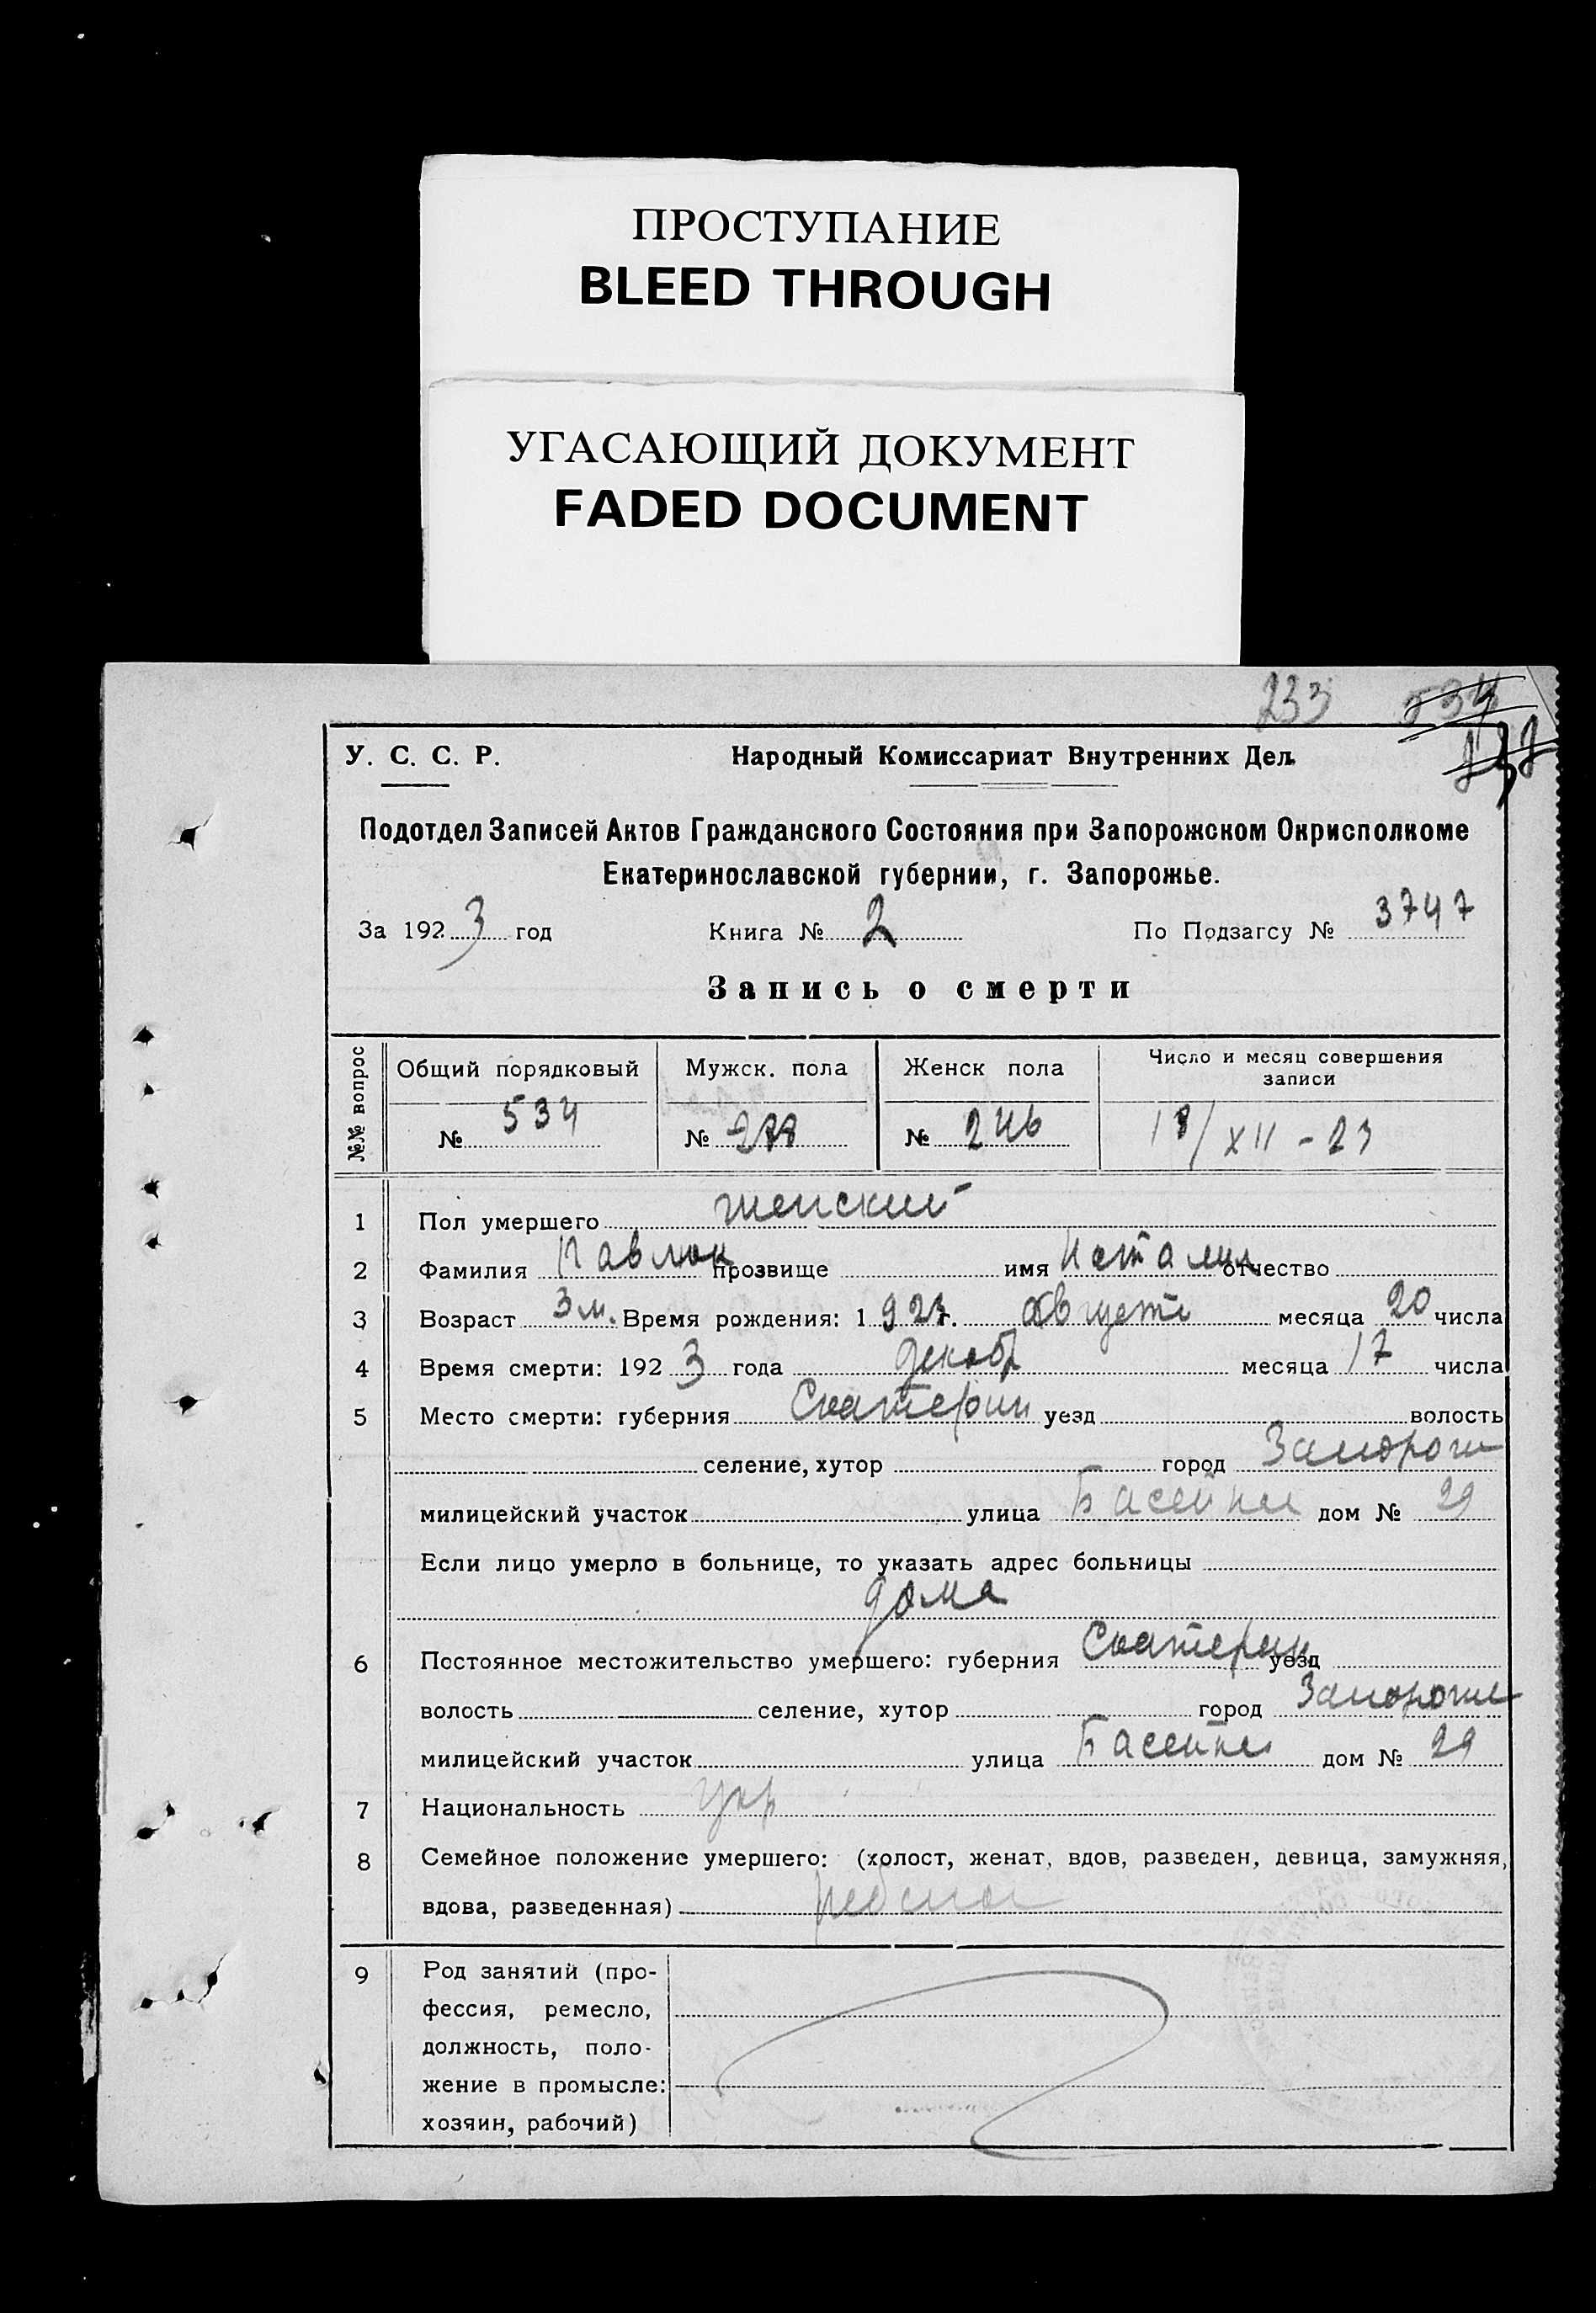 ПРОСТУПАНИЕ
BLEED THROUGH
УГАСАЮЩИЙ ДОКУМЕНТ
FADED DOCUMENT
233 534
У. С. С. Р. Народный Комиссариат Внутренних Дел.
Подотдел Записей Актов Гражданского Состояния при Запорожском Окрисполкоме
Екатеринославской губернии, г. Запорожье.
За 192 3 год Книга № 2 По Подзагсу № 3747
Запись о смерти
№№ вопрос Общий порядковый Мужск. пола Женск пола Число и месяц совершения
записи
№ 534 № № 246 18/XII-23
1 Пол умершего женский
2 Фамилия Павлюк прозвище имя Наталия отчество
3 Возраст 3 м. Время рождения: 1 923 г. августа месяца 20 числа
4 Время смерти: 192 3 года декабр месяца 17 числа
5 Место смерти: губерния Екатерин уезд волость
селение, хутор город Запорож
милицейский участок улица Басейна дом № 29
Если лицо умерло в больнице, то указать адрес больницы
дома
6 Постоянное местожительство умершего: губерния Екатерин уезд
волость селение, хутор город Запорожье
милицейский участок улица Басейна дом № 29
7 Национальность укр
8 Семейное положение умершего: (холост, женат, вдов, разведен, девица, замужняя,
вдова, разведенная) ребенок
9 Род занятий (про-
фессия, ремесло,
должность, поло-
жение в промысле:
хозяин, рабочий)